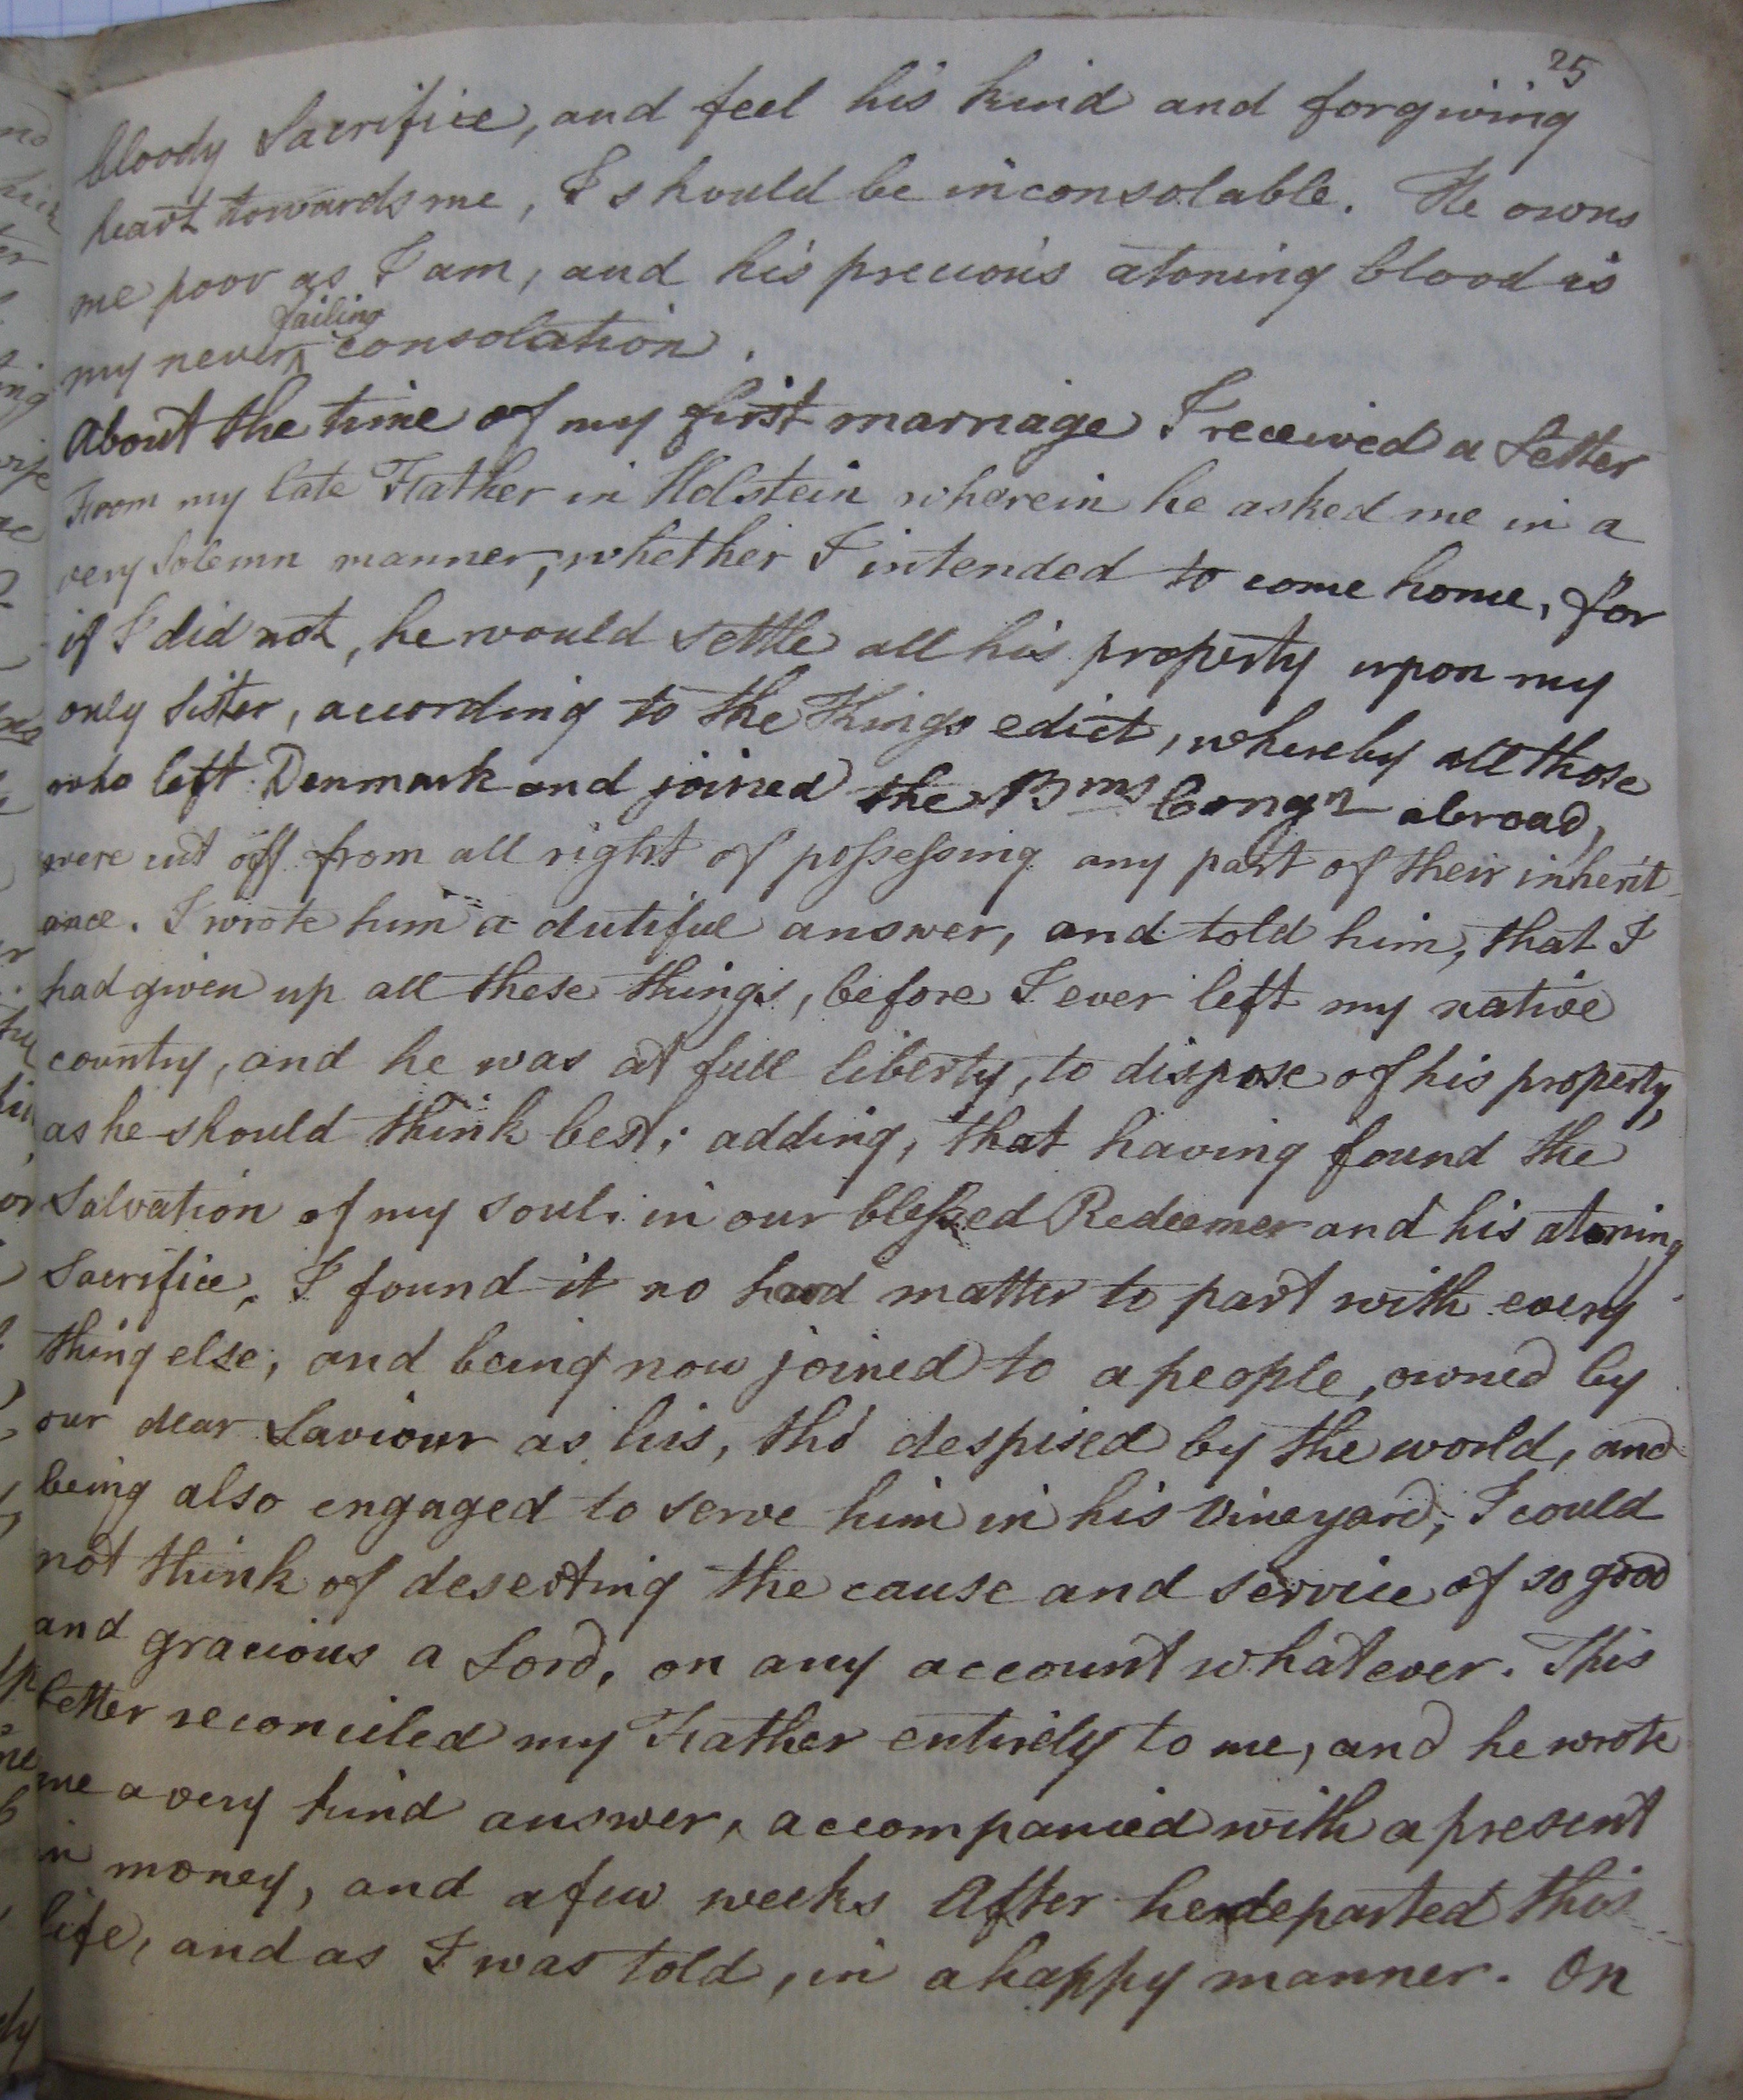 25
bloody Sacrifice, and feel his kind and forgiving
heart towards me, I should be inconsolable. He owns
me poor as I am, and his precious atoning blood is
failing
my never ‸ consolation.
About the time of my first marriage I received a Letter
From my late Father in Holstein wherein he asked me in a
very Solemn manner, whether I intended to come home, for
if I did not, he would settle all his property upon my
only Sister, according to the Kings edict, whereby all those
who left Denmark and joined the Brns Congn abroad,
were cut off from all right of possessing any part of their inherit-
ance. I wrote him a dutiful answer, and told him, that I
had given up all these things, before I ever left my native
country, and he was at full liberty, to dispose of his property,
as he should think best; adding, that having found the
Salvation of my soul in our blessed Redeemer and his atoning
Sacrifice, I found it no hard matter to part with every
thing else; and being now joined to a people, owned by
our dear Saviour as his, tho' despised by the world, and
being also engaged to serve him in his Vineyard, I could
not think of deserting the cause and service of so good
and gracious a Lord, on any account whatever. This
letter reconciled my Father entirely to me, and he wrote
me a very kind answer, accompanied with a present
in money, and a few weeks After he departed this
life, and as I was told, in a happy manner. On